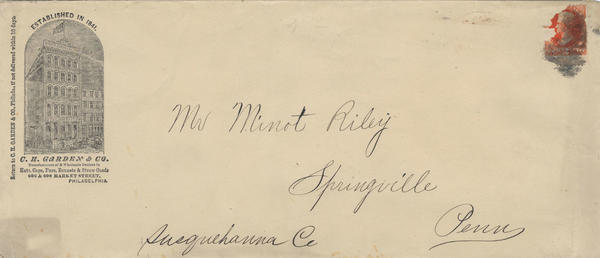 Return to C. H. GARDEN & CO., Philada., if not delivered within 10 days.
ESTABLISHED IN 1841.
C. H. GARDEN & CO.
Manufacturers of & Wholesale Dealers in
Hats, Caps, Furs, Bonnets & Straw Goods
606 & 608 MARKET STREET,
PHILADELPHIA.
Mr Minot Riley
Springville
Susquehanna Co
Penn